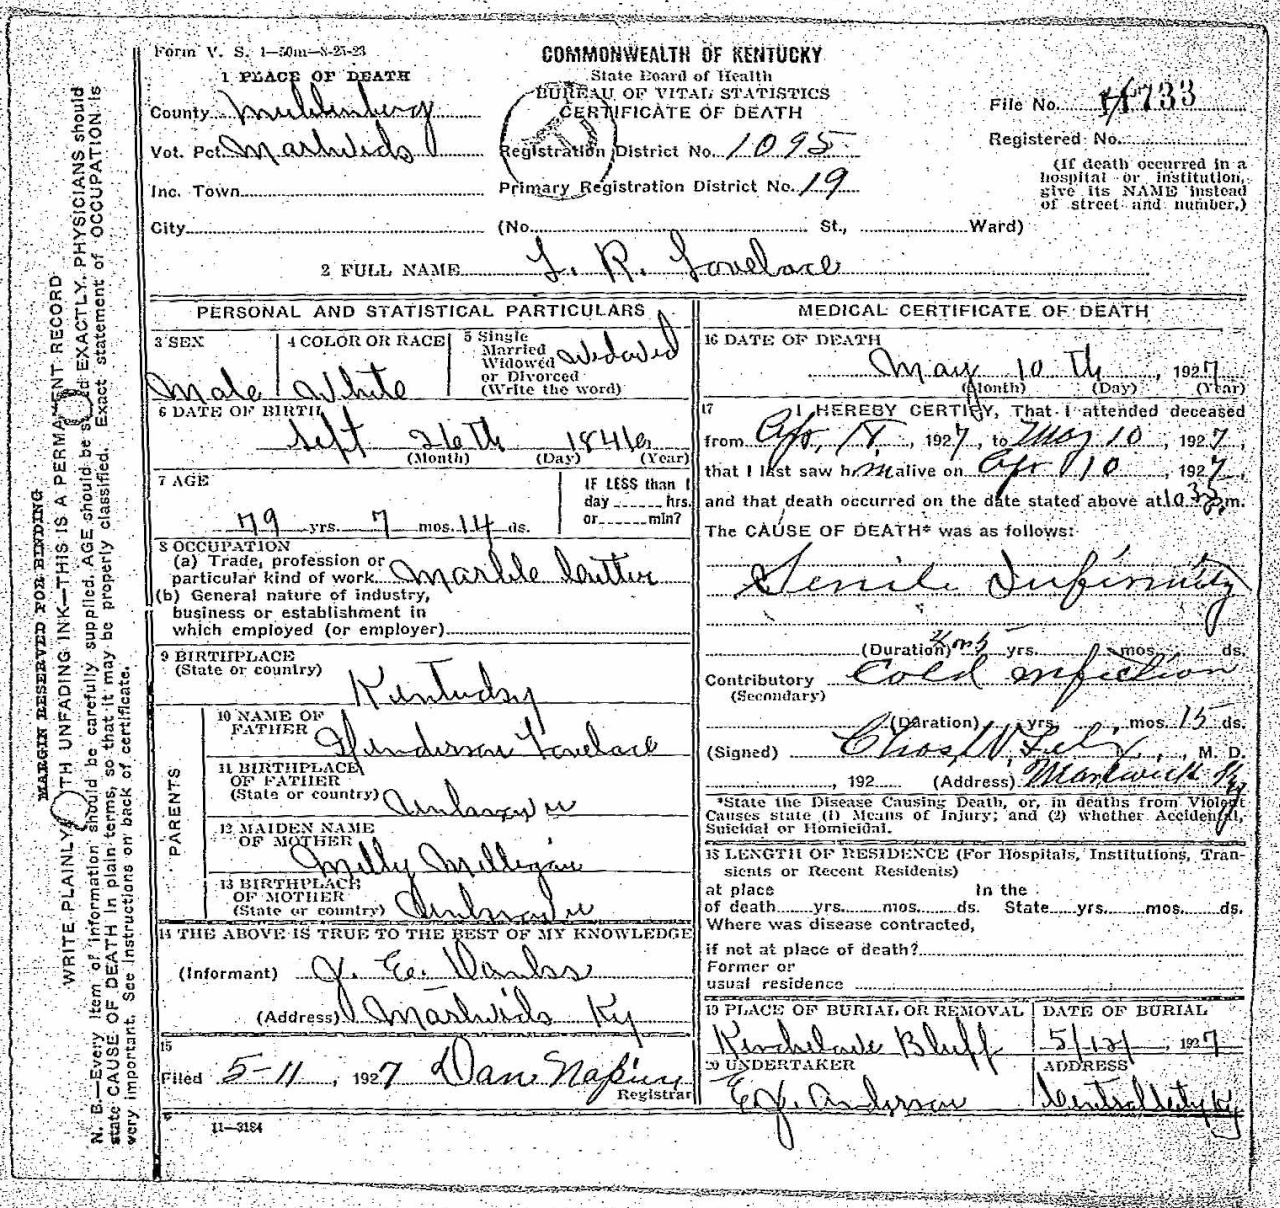 Form V. S. 1—50m—8-25-23
COMMONWEALTH OF KENTUCKY
State Board of Health
BUREAU OF VITAL STATISTICS
CERTIFICATE OF DEATH
File No. 733
Registered No.
(If death occurred in a
hospital or institution,
give its NAME instead
of street and number.)
1 PLACE OF DEATH
County Muhlenberg
Vot. Pct. Martwick
Registration District No. 1095
Inc. Town
Primary Registration District No. 19
City (No. St., Ward)
2 FULL NAME L. R. Lovelace
PERSONAL AND STATISTICAL PARTICULARS
3 SEX
Male
4 COLOR OR RACE
White
5 Single
Married
Widowed
or Divorced
(Write the word)
Widowed
6 DATE OF BIRTH
Sept 26th 1846
(Month) (Day) (Year)
7 AGE
79 yrs. 7 mos. 14 ds.
IF LESS than 1
day hrs.
or min?
8 OCCUPATION
(a) Trade, profession or
particular kind of work Marble Cutter
(b) General nature of industry,
business or establishment in
which employed (or employer)
9 BIRTHPLACE
(State or country)
Kentucky
PARENTS
10 NAME OF
FATHER Henderson Lovelace
11 BIRTHPLACE
OF FATHER
(State or country) Unknown
12 MAIDEN NAME
OF MOTHER Milly Milligan
13 BIRTHPLACE
OF MOTHER
(State or country) Unknown
14 THE ABOVE IS TRUE TO THE BEST OF MY KNOWLEDGE
(Informant) J. E.
(Address) Martwick Ky
15
Filed 5-11, 1927 Dan
Registrar
11—3184
MEDICAL CERTIFICATE OF DEATH
16 DATE OF DEATH
May 10th, 1927
(Month) (Day) (Year)
17 I HEREBY CERTIFY, That I attended deceased
from Apr, 1927, to May 10, 1927,
that I last saw him alive on Apr 10, 1927,
and that death occurred on the date stated above at m.
The CAUSE OF DEATH* was as follows:
Senile Infirmity
(Duration) yrs. mos. ds.
Contributory Cold infection
(Secondary)
(Duration) yrs. mos. 15 ds.
(Signed) Chas. W., M. D.
, 192 (Address) Martwick Ky
*State the Disease Causing Death, or, in deaths from Violent
Causes state (1) Means of Injury; and (2) whether Accidental,
Suicidal or Homicidal.
18 LENGTH OF RESIDENCE (For Hospitals, Institutions, Tran-
sients or Recent Residents)
at place In the
of death yrs. mos. ds. State yrs. mos. ds.
Where was disease contracted,
if not at place of death?
Former or
usual residence
19 PLACE OF BURIAL OR REMOVAL
Bluff
DATE OF BURIAL
5/12/, 1927
20 UNDERTAKER
E. J. Anderson
ADDRESS
Central City Ky
MARGIN RESERVED FOR BINDING
WRITE PLAINLY WITH UNFADING INK—THIS IS A PERMANENT RECORD
N. B.—Every item of information should be carefully supplied. AGE should be stated EXACTLY. PHYSICIANS should
state CAUSE OF DEATH in plain terms, so that it may be properly classified. Exact statement of OCCUPATION is
very important. See instructions on back of certificate.